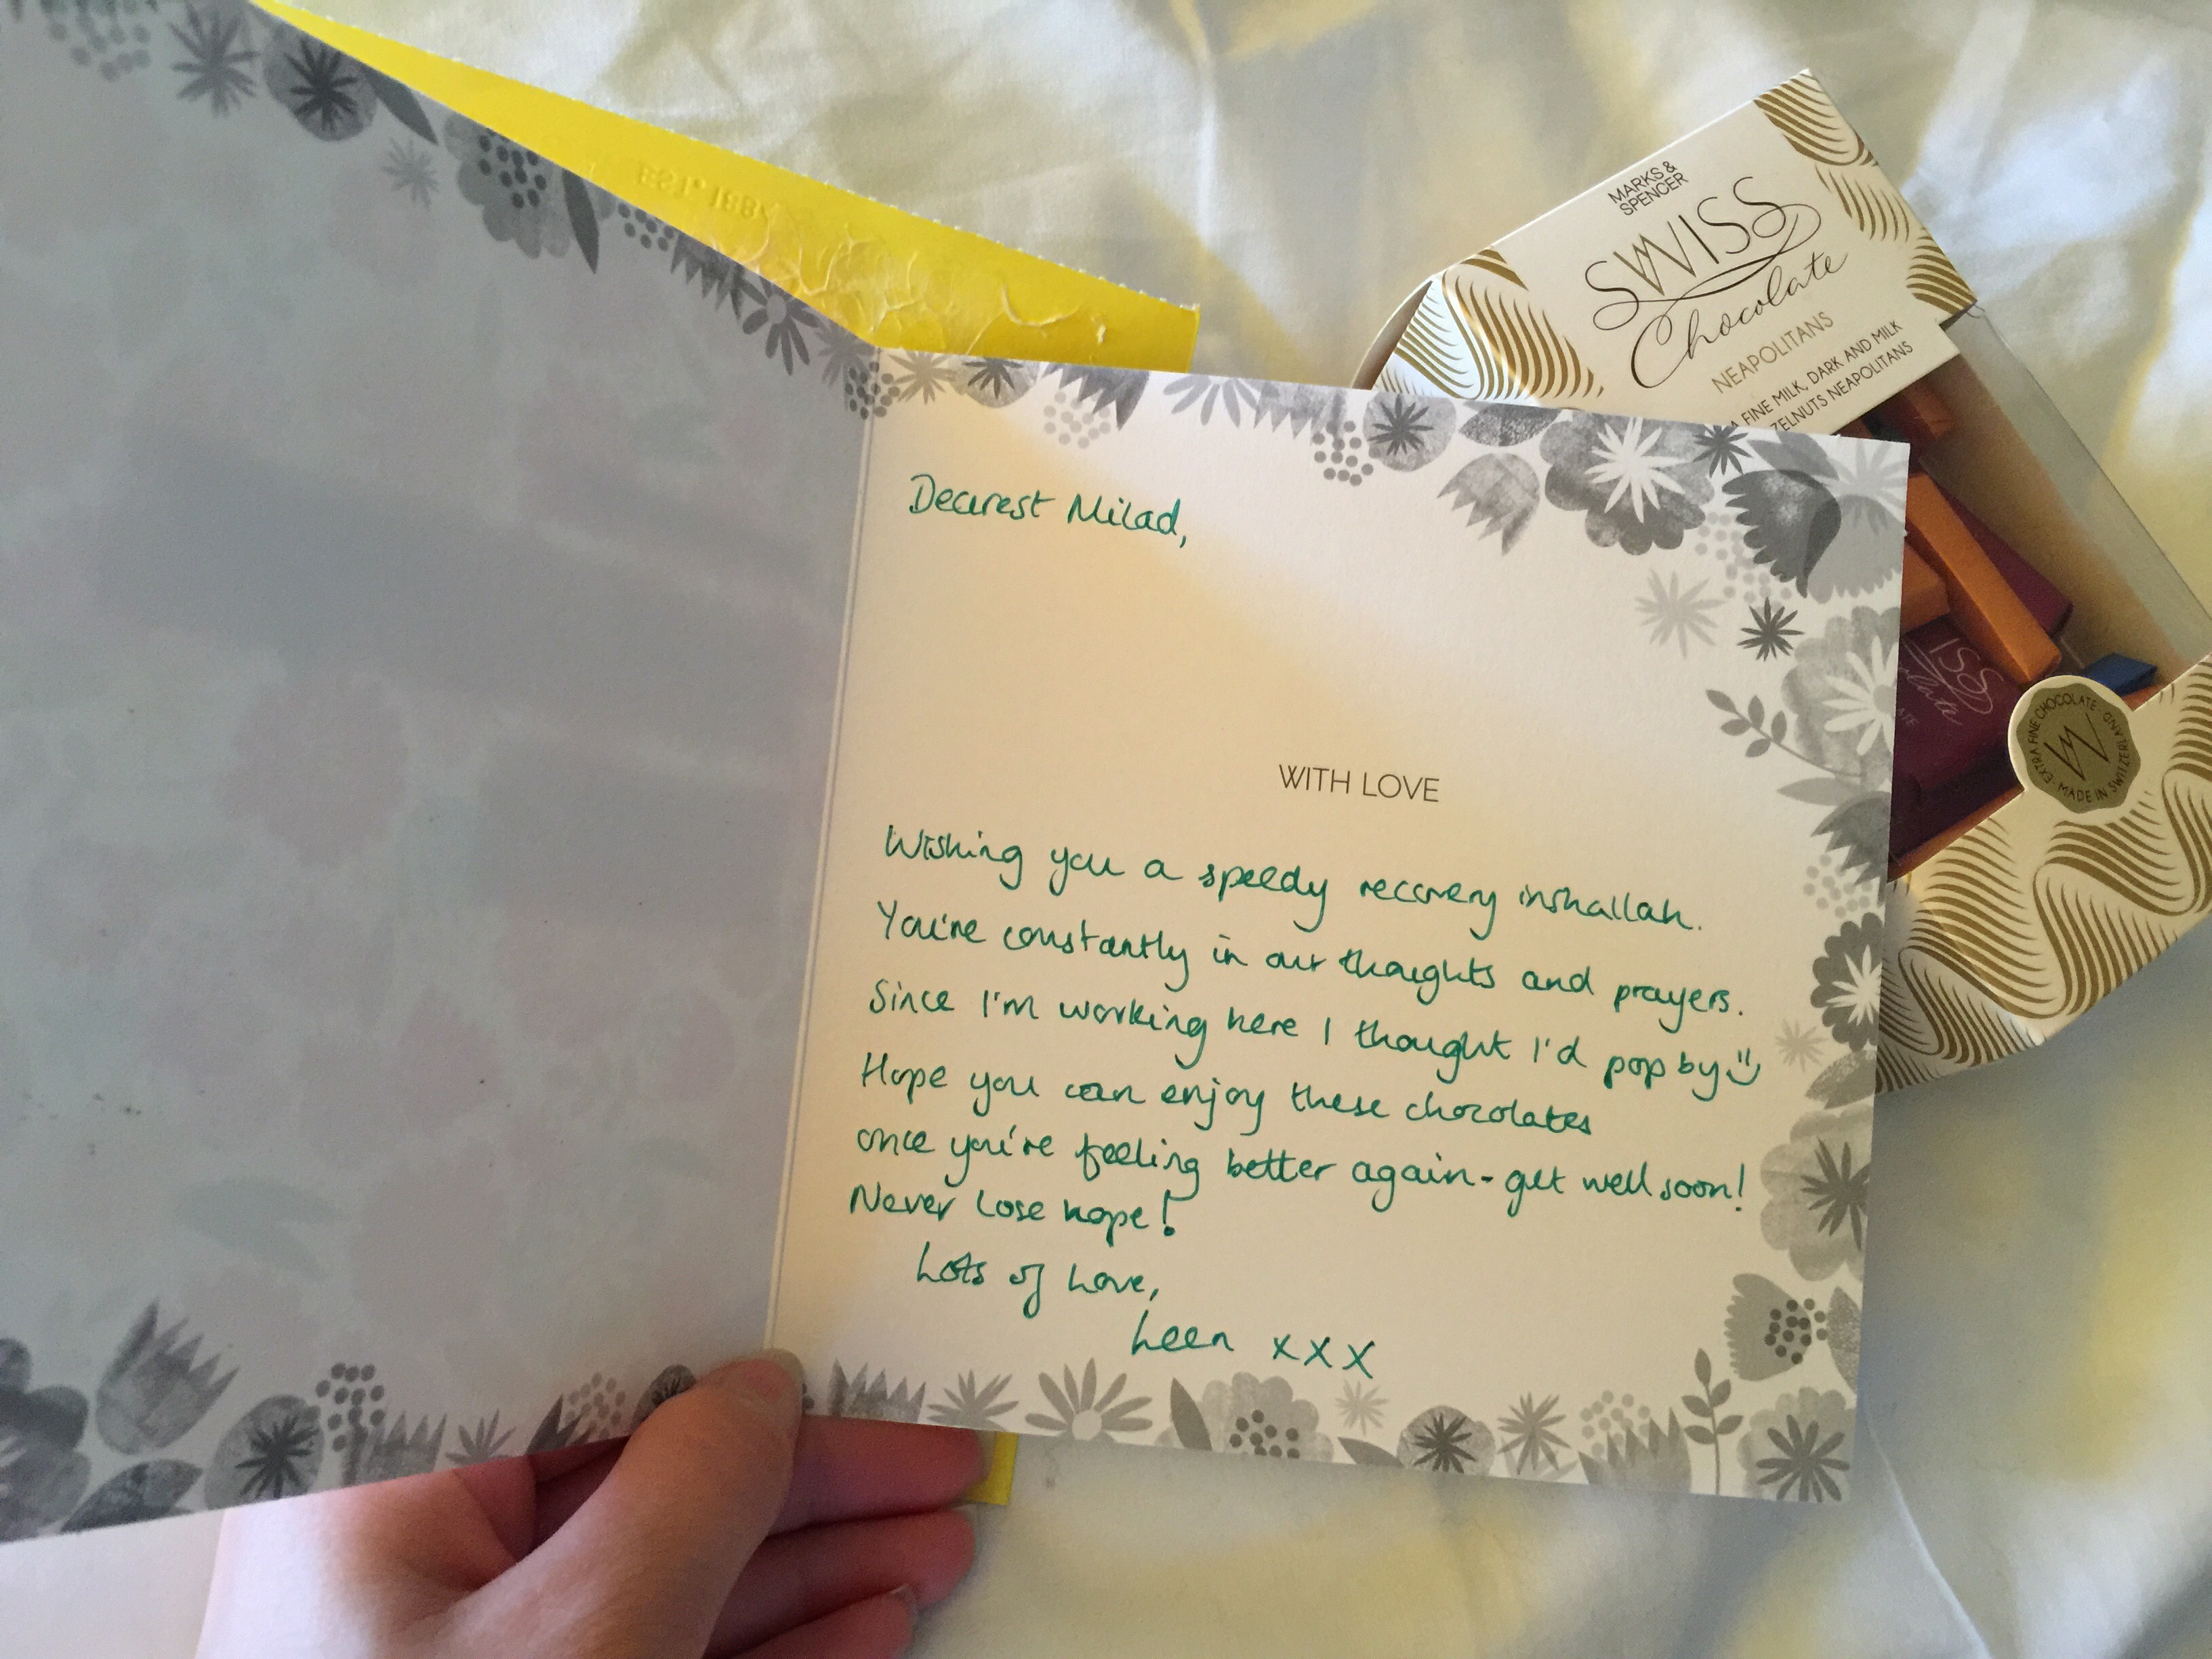 EST. 1884
MARKS &
SPENCER
SWISS
Chocolate
NEAPOLITANS
FINE MILK, DARK AND MILK
ZELNUTS NEAPOLITANS
Dearest Milad,
WITH LOVE
Wishing you a speedy recovery inshallah.
You're constantly in our thoughts and prayers.
Since I'm working here I thought I'd pop by
Hope you can enjoy these chocolates
once you're feeling better again - get well soon!
Never lose hope!
Lots of Love,
Leen xxx
ISS
EXTRA FINE CHOCOLATE · MADE IN SWITZERLAND